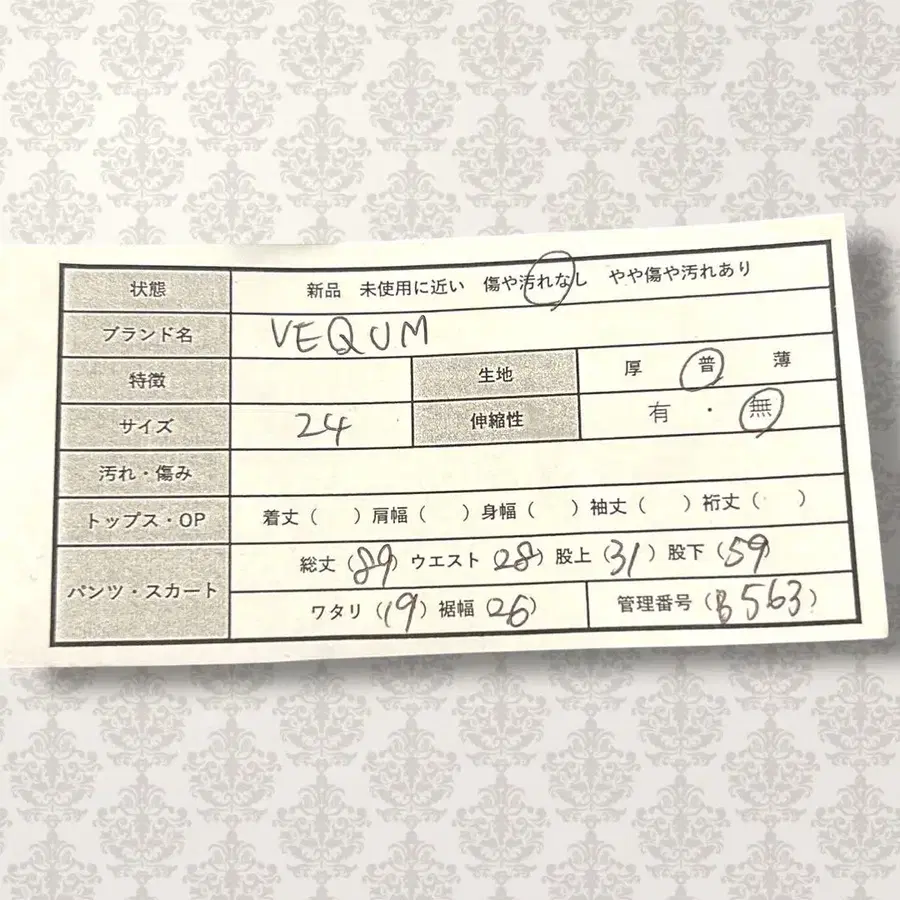 状態 新品 未使用に近い 傷や汚れなし やや傷や汚れあり
ブランド名 VEQUM
特徴 生地 厚 普 薄
サイズ 24 伸縮性 有 ・ 無
汚れ・傷み
トップス・OP 着丈( ) 肩幅( ) 身幅( ) 袖丈( ) 裄丈( )
パンツ・スカート
総丈(89) ウエスト(28) 股上(31) 股下(59)
ワタリ(19) 裾幅(26) 管理番号(B563)